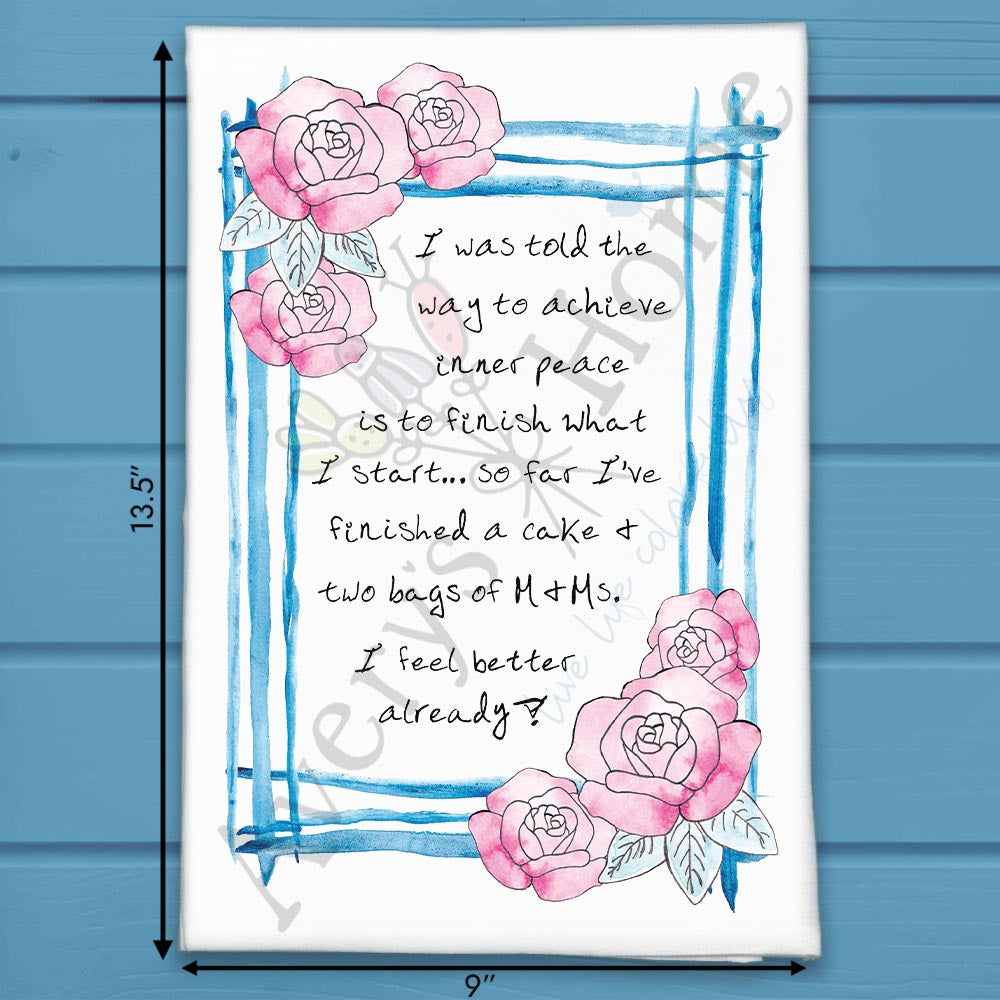 I was told the
way to achieve
inner peace
is to finish what
I start... so far I've
finished a cake &
two bags of M&Ms.
I feel better
already!
13.5"
9"
Avery's Home
live life colorfully